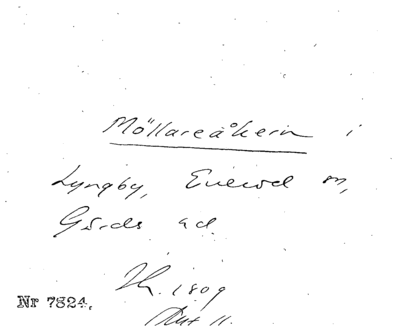 Möllareåkern i
Lyngby, Everöd sn,
Gärds hd.
1809
Akt 11.
Nr 7824.